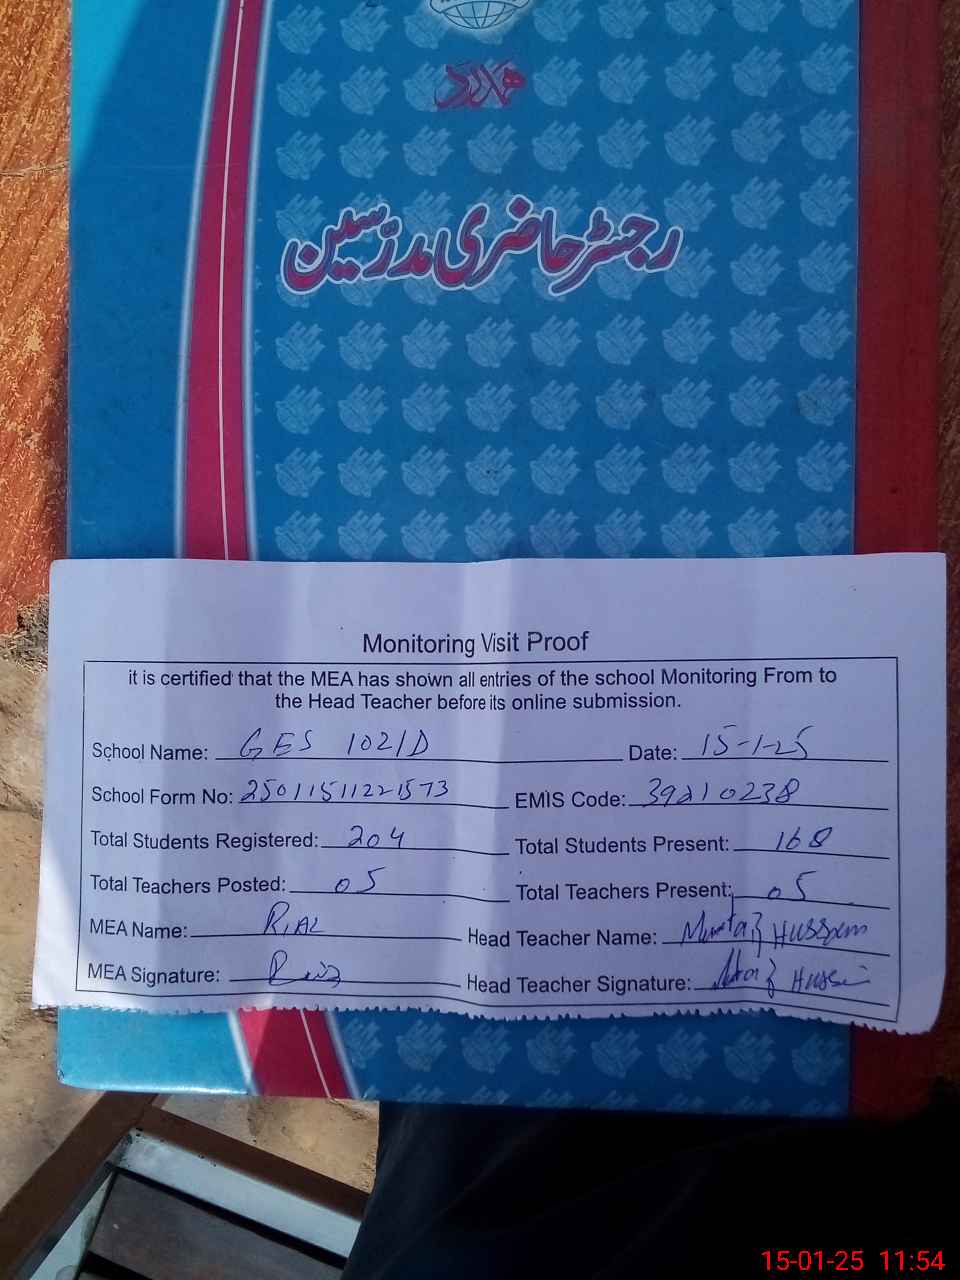 ہمدرد
رجسٹر حاضری مدرّسین
Monitoring Visit Proof
it is certified that the MEA has shown all entries of the school Monitoring From to
the Head Teacher before its online submission.
School Name: GES 102/D Date: 15-1-25
School Form No: 25011511221573 EMIS Code: 39210238
Total Students Registered: 204 Total Students Present: 168
Total Teachers Posted: 05 Total Teachers Present: 05
MEA Name: Riaz Head Teacher Name: Mumtaz Hussain
MEA Signature: Riaz Head Teacher Signature: Hussain
15-01-25 11:54